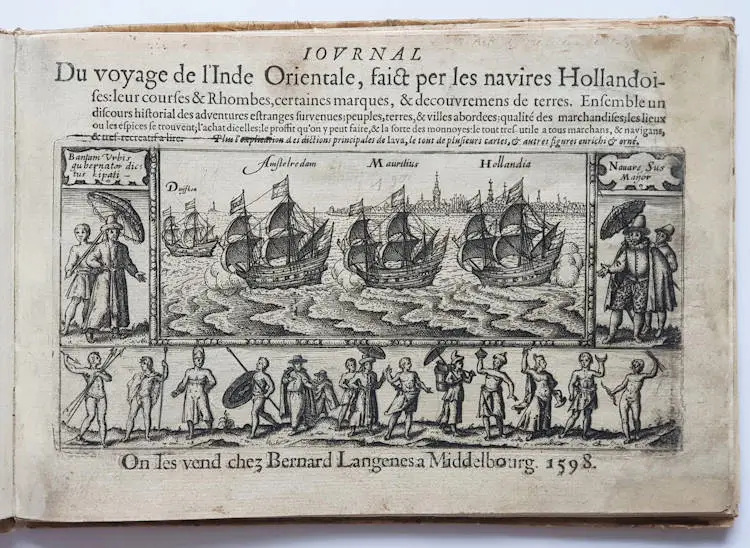 IOVRNAL
Du voyage de l'Inde Orientale, faict per les navires Hollandoi-
ses: leur courses & Rhombes, certaines marques, & decouvremens de terres. Ensemble un
discours historial des adventures estranges survenues; peuples, terres, & villes abordees; qualité des marchandises; les lieux
ou les espices se trouvent, l'achat dicelles: le proffit qu'on y peut faire, & la sorte des monnoyes: le tout tres-utile a tous marchans, & navigans,
& tres-recreatif a lire. Plus l'explication des dictions principales de Iava, le tout de plusieurs cartes, & autres figures enrichi & orné.
Bantam Urbis
gubernator dict
tus kipati
Amstelredam Mauritius Hollandia
Duifken
Navare Sus
Maior
On les vend chez Bernard Langenes a Middelbourg. 1598.